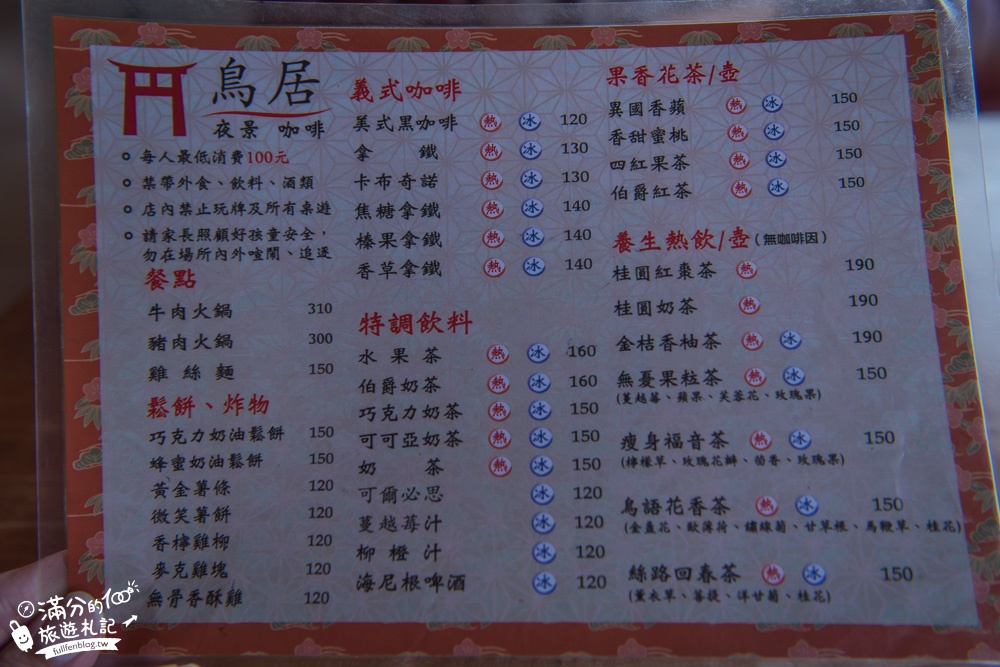 鳥居
夜景 咖啡
每人最低消費100元
禁帶外食、飲料、酒類
店內禁止玩牌及所有桌遊
請家長照顧好孩童安全,
勿在場所內外喧鬧、追逐
餐點
牛肉火鍋 310
豬肉火鍋 300
雞絲麵 150
鬆餅、炸物
巧克力奶油鬆餅 150
蜂蜜奶油鬆餅 150
黃金薯條 120
微笑薯餅 120
香檸雞柳 120
麥克雞塊 120
無骨香酥雞 120
義式咖啡
美式黑咖啡 熱 冰 120
拿鐵 熱 冰 130
卡布奇諾 熱 冰 130
焦糖拿鐵 熱 冰 140
榛果拿鐵 熱 冰 140
香草拿鐵 熱 冰 140
特調飲料
水果茶 熱 冰 160
伯爵奶茶 熱 冰 160
巧克力奶茶 熱 冰 150
可可亞奶茶 熱 冰 150
奶茶 熱 冰 150
可爾必思 冰 120
蔓越莓汁 冰 120
柳橙汁 冰 120
海尼根啤酒 冰 120
果香花茶/壺
異國香蘋 熱 冰 150
香甜蜜桃 熱 冰 150
四紅果茶 熱 冰 150
伯爵紅茶 熱 冰 150
養生熱飲/壺(無咖啡因)
桂圓紅棗茶 熱 190
桂圓奶茶 熱 190
金桔香柚茶 熱 冰 190
無憂果粒茶 熱 冰 150
(蔓越莓、蘋果、芙蓉花、玫瑰果)
瘦身福音茶 熱 冰 150
(檸檬草、玫瑰花瓣、茴香、玫瑰果)
鳥語花香茶 熱 冰 150
(金盞花、歐薄荷、繡線菊、甘草根、馬鞭草、桂花)
絲路回春茶 熱 冰 150
(薰衣草、菩提、洋甘菊、桂花)
滿分的100
旅遊札記
fullfenblog.tw